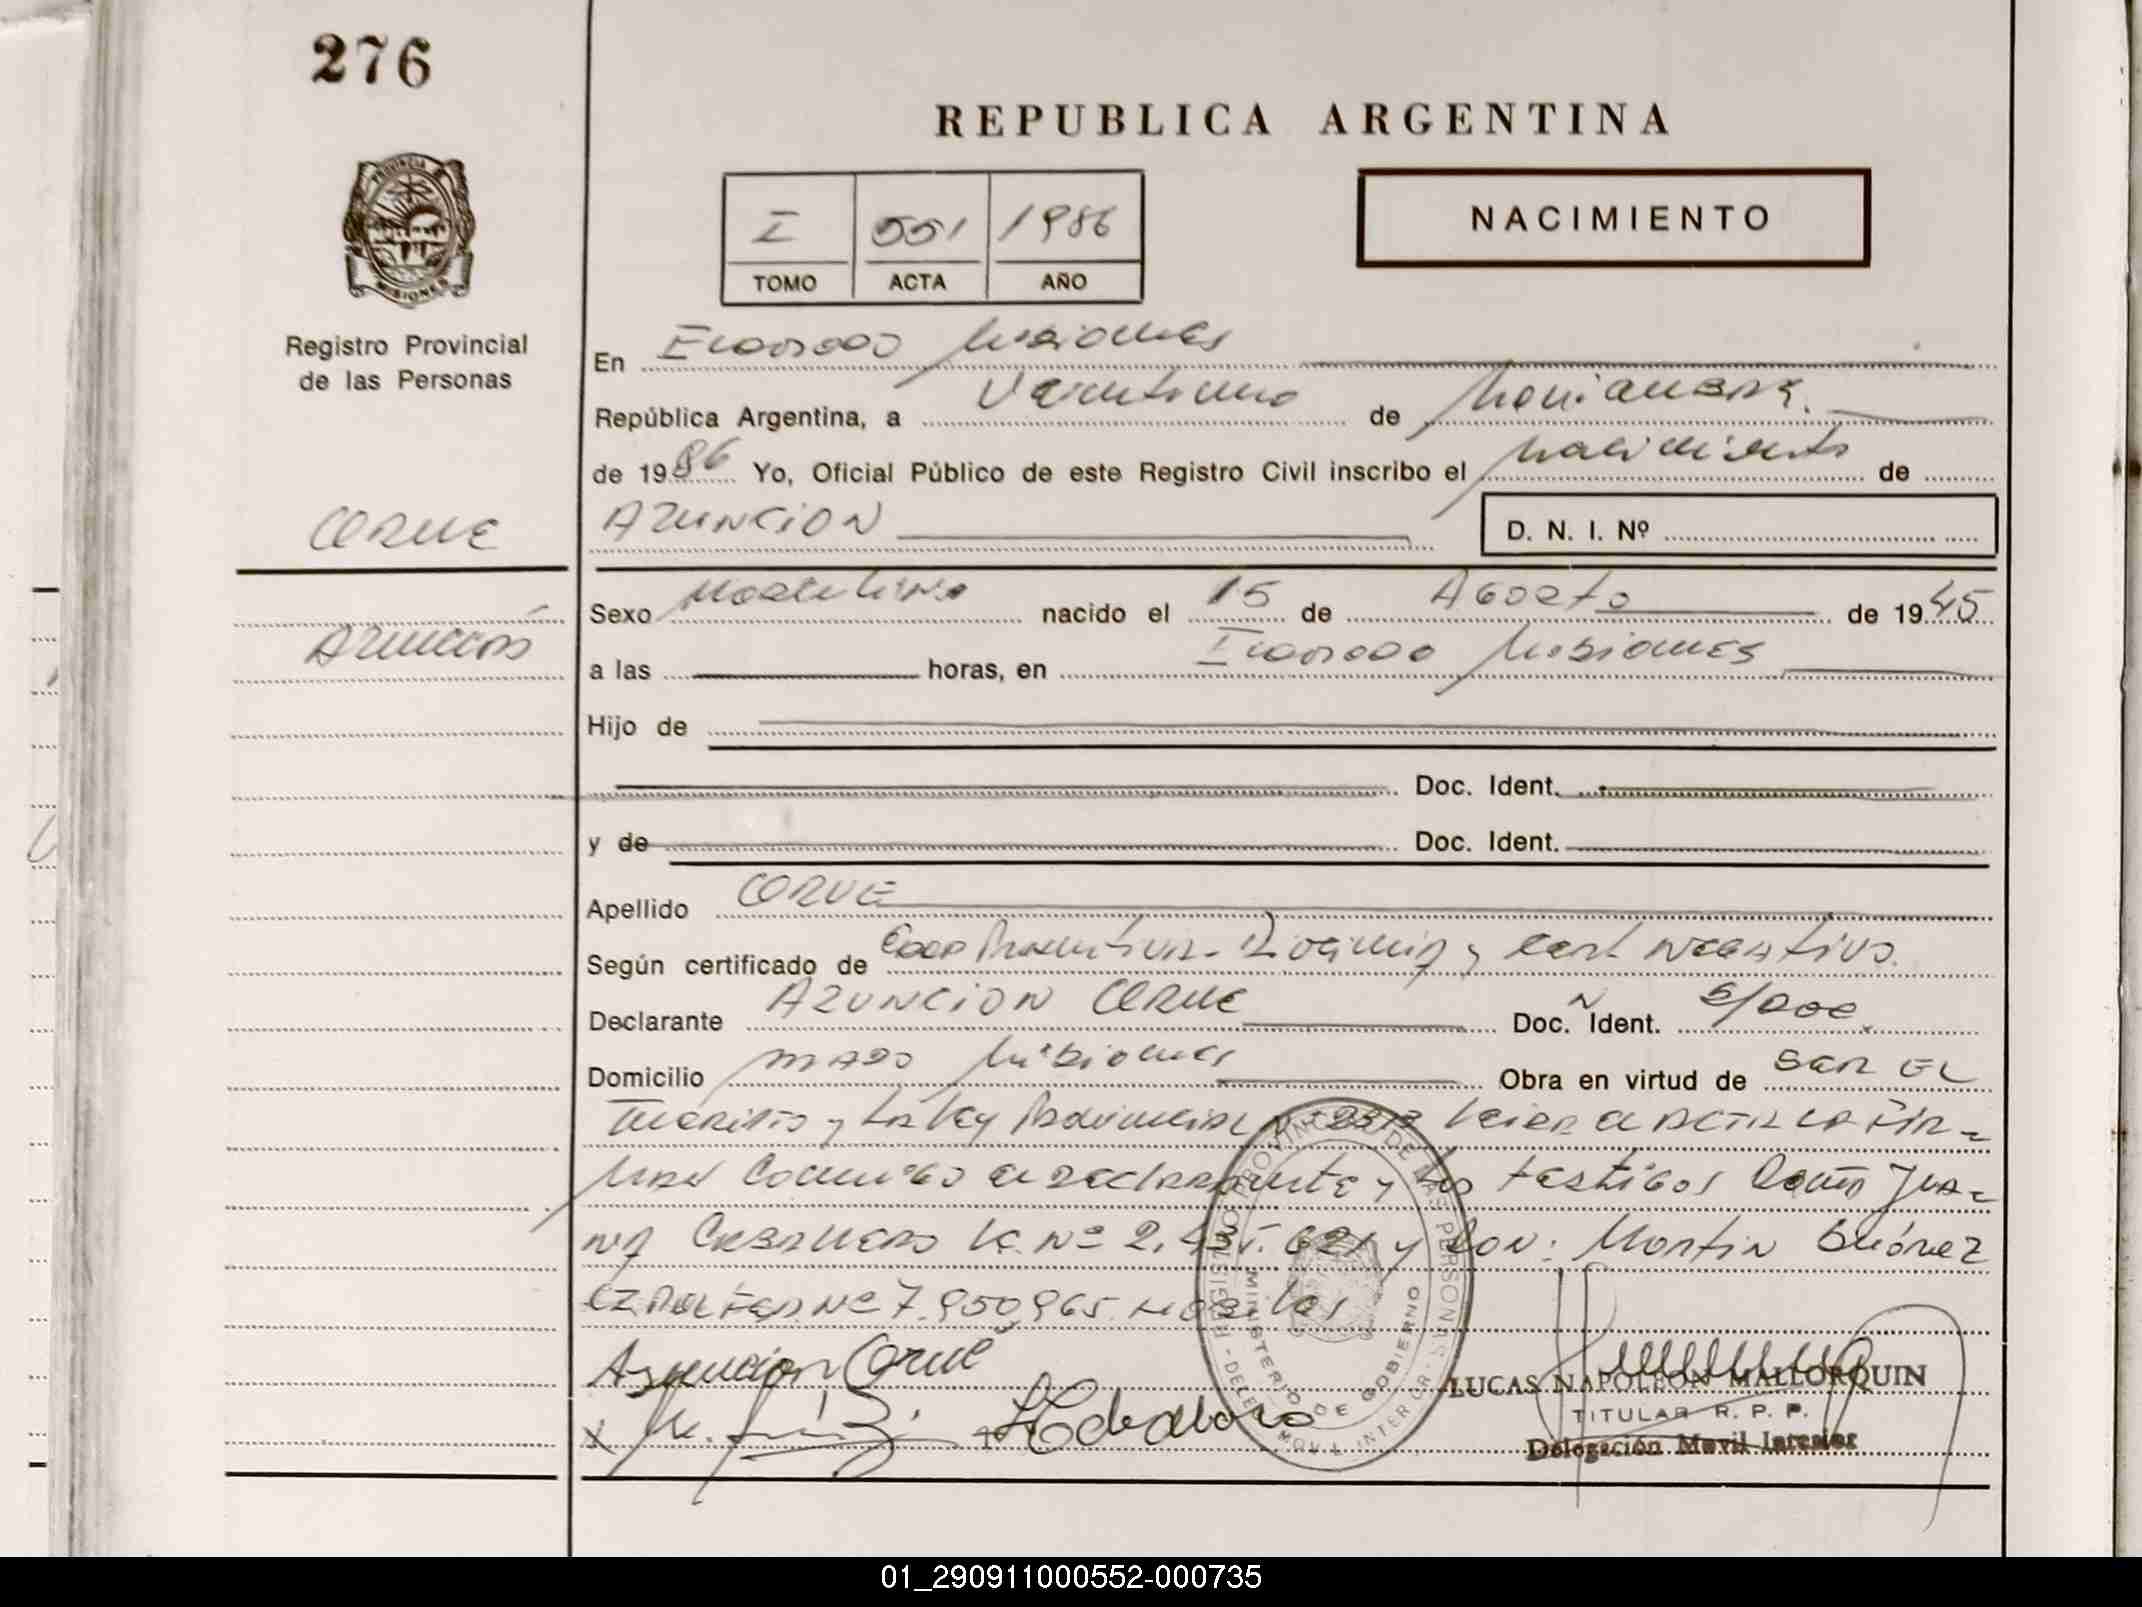 276
REPUBLICA ARGENTINA
PROVINCIA
MISIONES
I 551 1986
TOMO ACTA AÑO
NACIMIENTO
Registro Provincial
de las Personas
En Eldorado Misiones
República Argentina, a Veintiuno de Noviembre.
de 1986 Yo, Oficial Público de este Registro Civil inscribo el nacimiento de
CORUE
AZUNCION
D. N. I. Nº
Azuncion
Sexo Masculino nacido el 15 de Agosto de 1945
a las horas, en Eldorado Misiones
Hijo de
Doc. Ident.
y de Doc. Ident.
Apellido CORUE
Según certificado de y cert negativo.
Declarante AZUNCION CORUE Doc. Ident. S/doc.
Domicilio MADO Misiones Obra en virtud de SER EL
y la Ley Provincial Nº el acta la fir-
man conmigo el declarante y los testigos Doña Jua-
na Caballero Nº y Don: Martin
Nº 7.950.965.
Asuncion Corue
LUCAS NAPOLEON MALLORQUIN
TITULAR R. P. P.
Delegación Movil Interior
REGISTRO PROVINCIAL DE LAS PERSONAS
MINISTERIO DE GOBIERNO
01_290911000552-000735